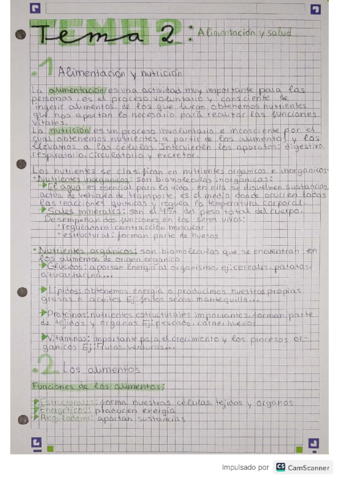 Tema 2: Alimentación y salud
.1 Alimentación y nutrición
La alimentación es una actividad muy importante para las
personas, es el proceso voluntario y consciente de
ingerir alimentos, de los que luego obtenemos nutrientes
que nos aportan lo necesario para realizar las funciones
vitales.
La nutrición es un proceso involuntario e inconsciente por el
cual obtenemos nutrientes a partir de los alimentos y los
llevamos a las células. Intervienen los aparatos: digestivo,
respiratorio, circulatorio y excretor.
Los nutrientes se clasifican en nutrientes orgánicos e inorgánicos
•Nutrientes inorgánicos: son biomoléculas inorgánicas:
El agua: es esencial para la vida, en ella se disuelven sustancias,
actúa de vehículo de transporte, es el medio donde ocurren todas
las reacciones químicas y regula la temperatura corporal
Sales minerales: son el 4% del peso total del cuerpo.
Desempeñan dos funciones en los seres vivos:
•reguladora: contracción muscular
•estructural: forman parte de huesos
•Nutrientes orgánicos: son biomoléculas que se encuentran en
los alimentos de origen orgánico
Glúcidos: aportan energía al organismo ej: cereales, patatas,
Lípidos: obtenemos energía o producimos nuestras propias
grasas o aceites Ej: frutos secos, mantequilla...
Proteínas: nutrientes estructurales importantes, forman parte
de tejidos y órganos Ej: pescado, carne, huevos
Vitaminas: importante para el crecimiento y los procesos or-
gánicos Ej: frutas, verduras...
.2 Los alimentos
Funciones de los alimentos:
Estructural: forma nuestras células, tejidos y órganos
Energéticos: producen energía
aportan sustancias
Impulsado por CS CamScanner